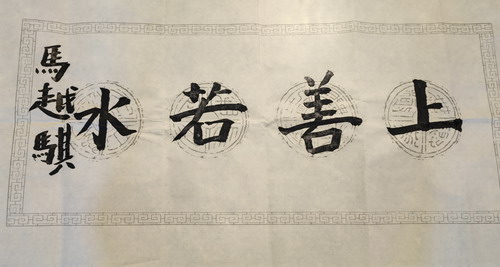 上善若水
馬越騏